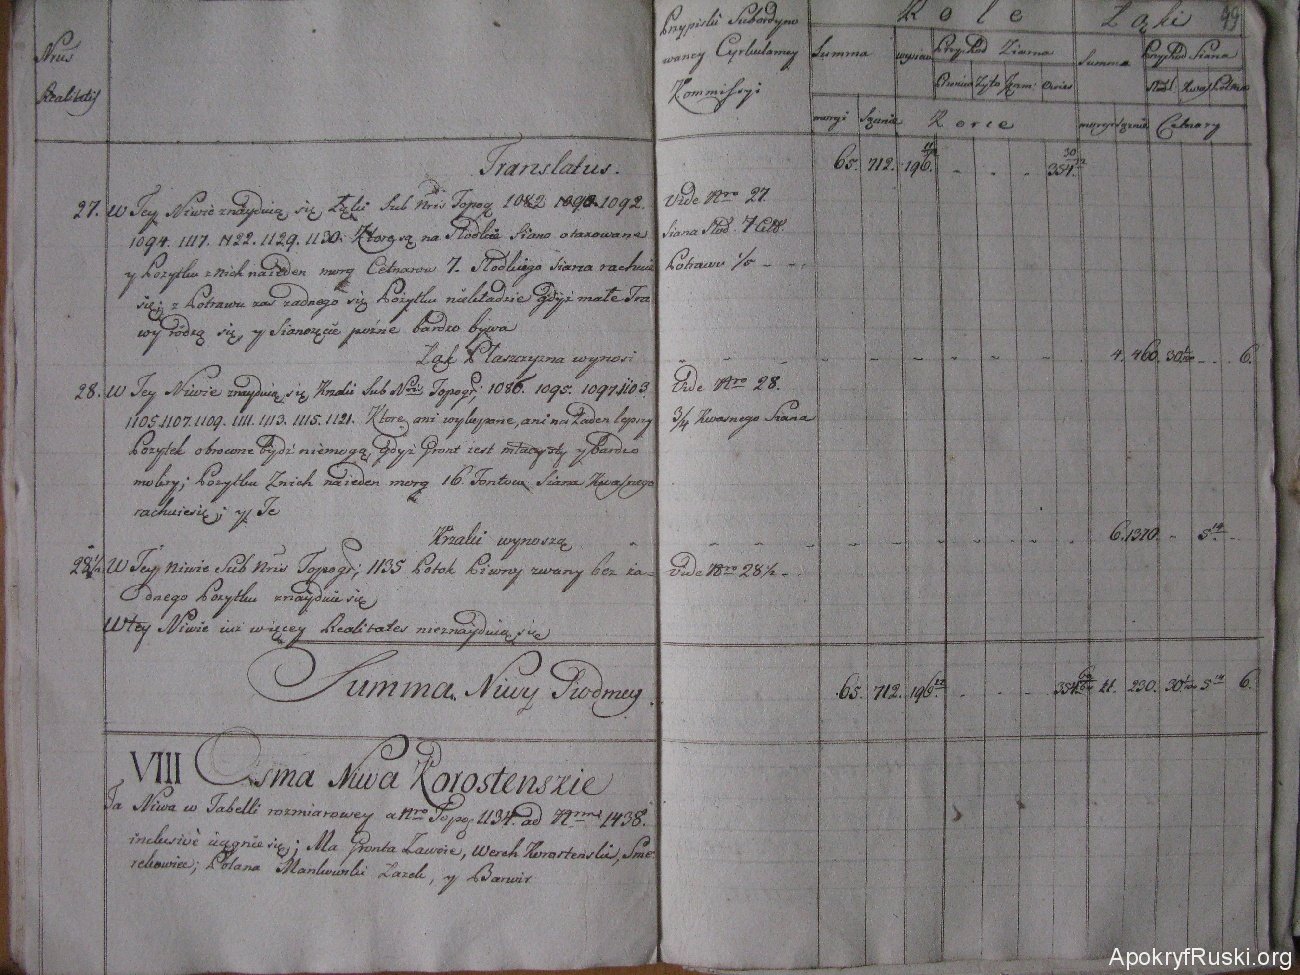 Nrus
Realitatis
Translatus.
27. W Tey Niwie znayduią się Łąki Sub Nris Topog 1082 1092.
1094. 1117. 1122. 1129. 1130. Ktore są na Słodkie Siano otaxowane
y Pożytku z nich na ieden morg Cetnarow 7. Słodkiego Siana rachuie
się; z Potrawu zas żadnego się Pożytku niekładzie gdyż małe Tra
wy rodzą się, y Sianożęcie poźne bardzo bywa
Łąk Płaszczyzna wynosi
28. W Tey Niwie znayduią się Krzaki Sub Nris Topogr; 1086. 1095. 1097. 1103
1105. 1107. 1109. 1111. 1113. 1115. 1121. Ktore ani wylepone, ani na Żaden lepszy
Pożytek obrocone bydź niemogą, gdyż Gront iest y bardzo
mokry; Pożytku Znich na ieden morg 16 Fontow Siana Kwasnego
rachuiesię; y Te
Krzaki wynoszą
28 1/2 W Tey Niwie Sub Nris Topogr; 1135 Potok Piwny zwany bez ża-
dnego Pożytku znayduie się
W tey Niwie iuż więcey Realitates nieznayduią się
Summa Niwy Siodmey
VIII Osma Niwa Korostenskie
Ta Niwa w Tabelli rozmiarowey a Nro Topog 1134. ad Nrum 1438.
inclusive ciągnie się; Ma Gronta Zawoie, Werch Korostenski, Sme
rekowiec; Polana Mankowski Łazek, y Barwir
Przypiski Subordyno
waney Cyrkularney
Kommissyi
Role
Łąki
99
Summa
wysiew
Przychod Ziarna
Summa
Przychod Siana
Pszenica Żyto Jęzm: Owies
Słod: Kwas Potraw
morgi Sążnie
Korce
morgi Sążnie
Cetnary
65. 712. 196. 354.
Vide Nro 27.
Siana Słod. 7 Cett.
Potrawu 1/5
4. 460. 30 6.
Vide Nro 28.
3/4 Kwasnego Siana
6. 1370. 5
Vide Nro 28 1/2
65. 712. 196. 354. 11. 230. 30 5 6.
ApokryfRuski.org